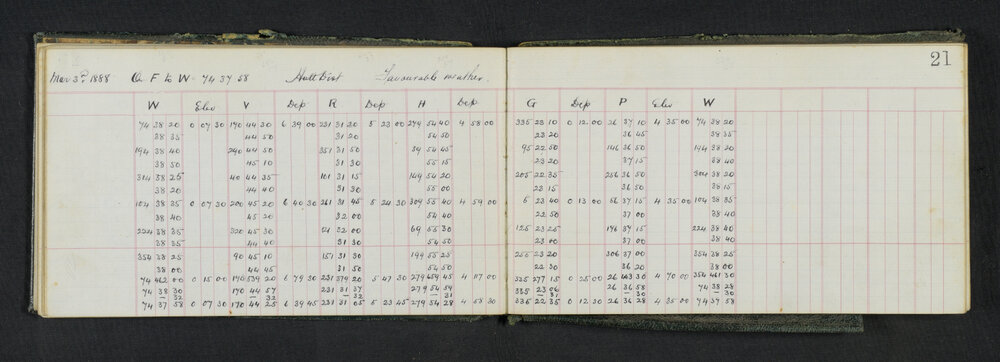 21
Mar 3rd 1888 @ F to W 74 37 58 Hutt Dist Favourable weather.
W Elev V Dep R Dep H Dep G Dep P Elev W
74 38 20 0 07 30 170 44 30 6 39 00 231 31 20 5 23 00 279 54 40 4 58 00 335 23 10 0 12 00 26 37 10 4 35 00 74 38 20
38 35 44 50 31 20 54 50 23 20 36 45 38 35
194 38 40 290 44 50 351 31 50 39 54 45 95 22 50 146 36 50 194 38 20
38 50 45 10 31 30 55 15 23 20 37 15 38 40
314 38 25 40 44 35 101 31 15 149 54 20 205 22 35 256 36 50 304 38 20
38 20 44 40 31 30 55 00 23 15 36 50 38 15
104 38 35 0 07 30 200 45 20 6 40 30 261 31 45 5 24 30 309 55 40 4 59 00 5 23 40 0 13 00 56 37 15 4 35 00 104 38 35
38 40 45 20 32 00 54 40 22 50 37 00 38 40
224 38 35 320 45 30 21 32 00 69 55 30 125 23 25 176 37 15 224 38 40
38 35 44 40 31 30 54 50 23 00 37 00 38 40
354 38 25 90 45 10 151 31 30 199 55 25 255 23 20 306 37 00 354 38 25
38 00 44 45 31 50 54 50 22 30 36 20 38 00
74 462 00 0 15 00 170 539 20 6 79 30 231 379 20 5 47 30 279 659 45 4 117 00 335 277 15 0 25 00 26 443 30 4 70 00 354 461 30
74 38 30 170 44 57 231 31 37 279 54 59 335 23 06 26 36 58 74 38 28
— 32 — 32 — 32 — 31 — 31 — 30 — 30
74 37 58 0 07 30 170 44 25 6 39 45 231 31 05 5 23 45 279 54 28 4 58 30 335 22 35 0 12 30 26 36 28 4 35 00 74 37 58